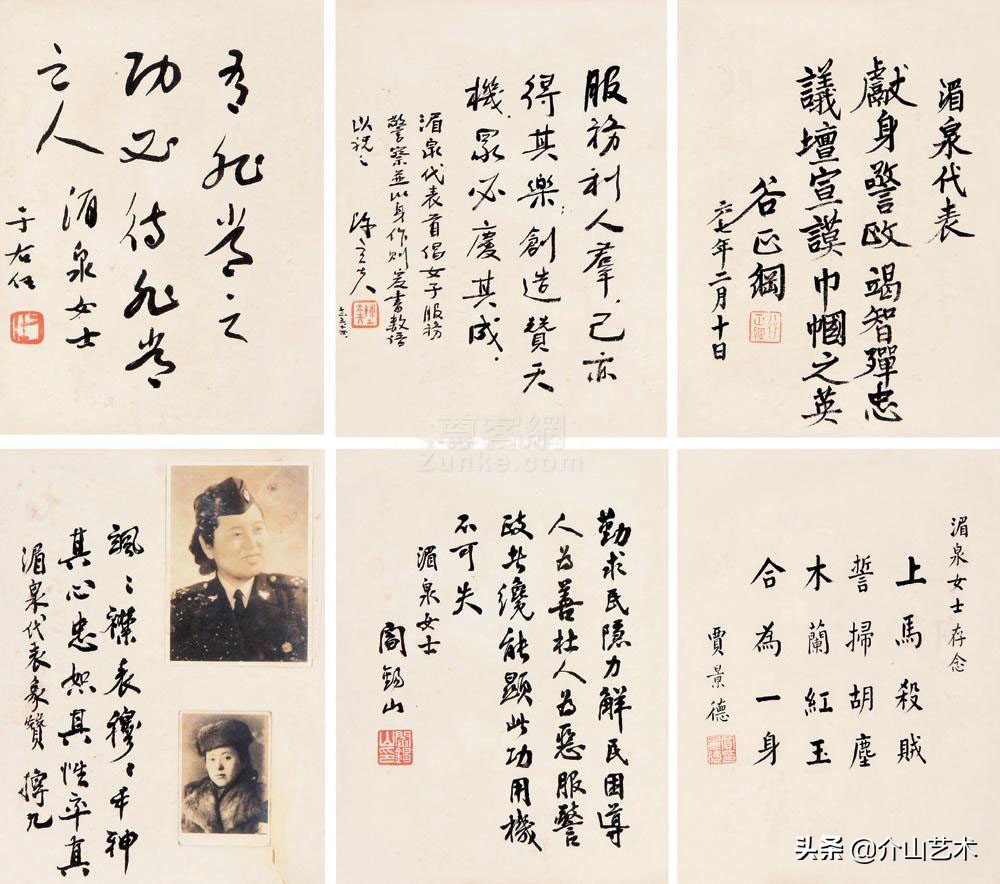 湄泉代表
獻身警政竭智殫忠
議壇宣謨巾幗之英
谷正綱
六七年二月十日
服務利人羣,己亦
得其樂;創造贊天
機,眾必慶其成.
湄泉代表首倡女子服務
警察並以身作則爰書數語
以祝之 陳立夫
有非常之
功必待非常
之人
湄泉女士
于右任
湄泉女士存念
上馬殺賊
誓掃胡塵
木蘭紅玉
合為一身
賈景德
勤求民隱力解民困導
人為善杜人為惡服警
政者纔能顯此功用機
不可失
湄泉女士
閻錫山
颯〻襟表穆〻丰神
其心忠恕其性率真
湄泉代表象贊
尊客網
Zunke.com
头条 @介山艺术